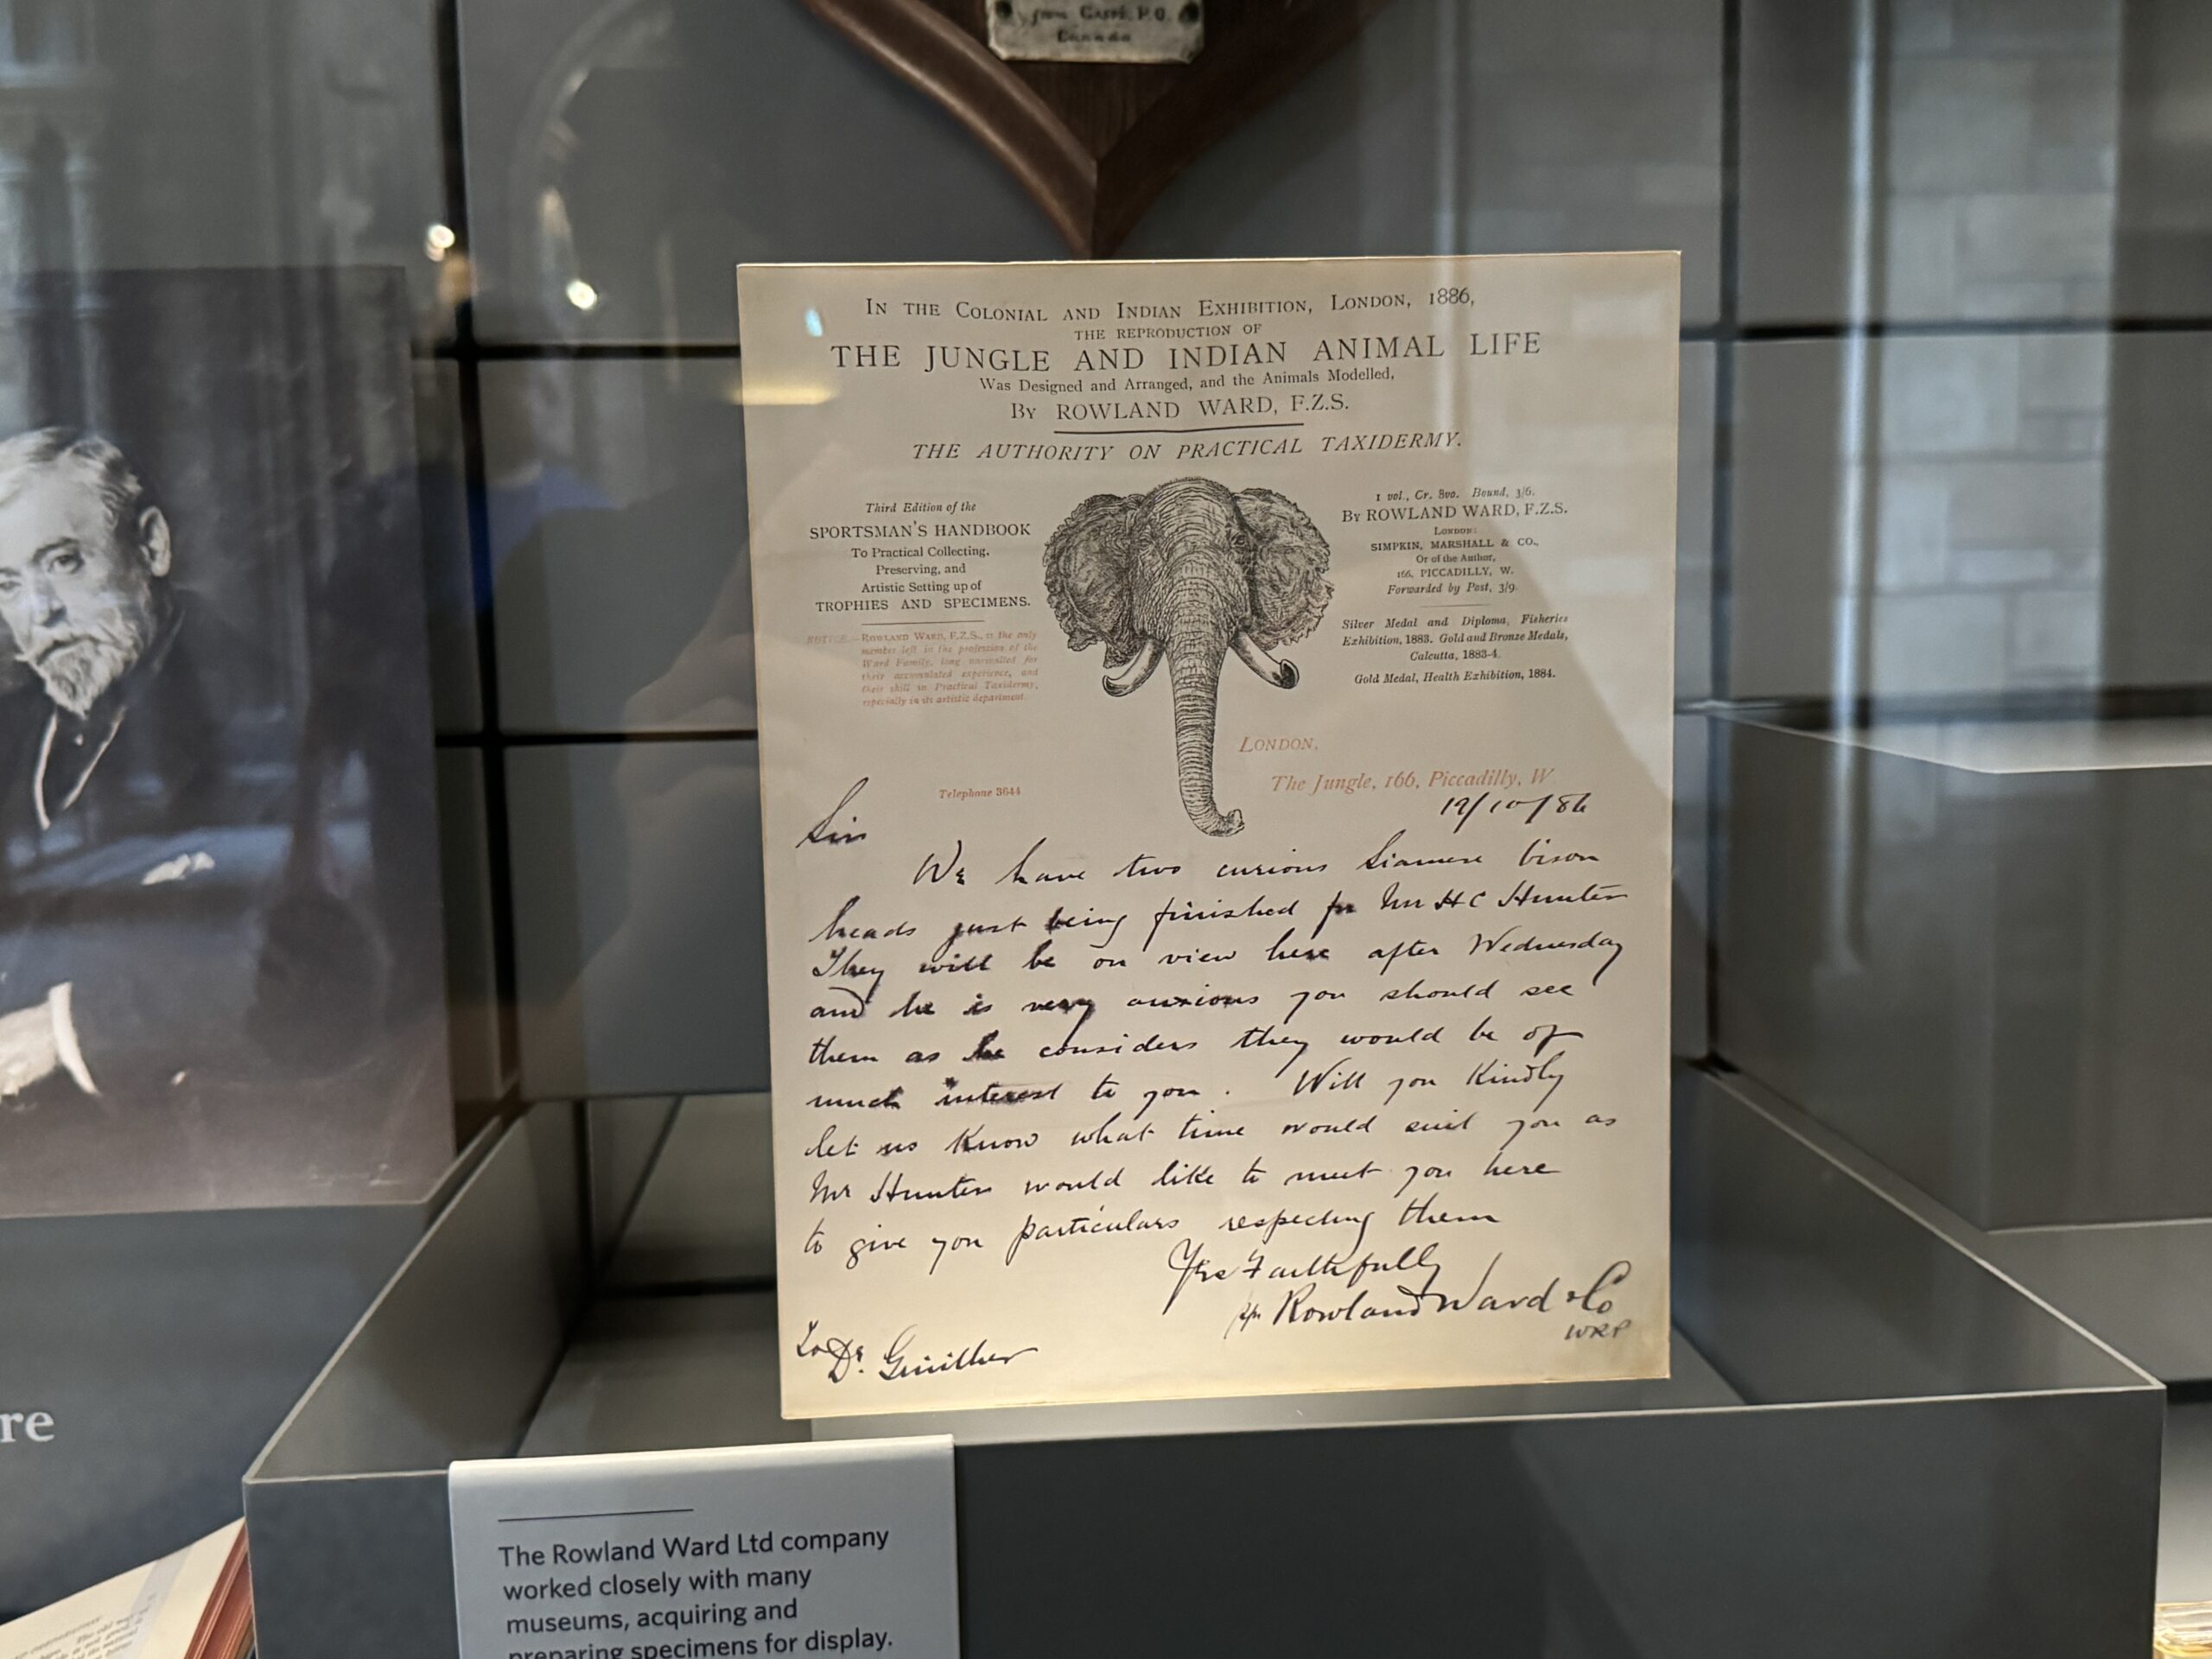 from Gaspé, P.Q.
Canada
In the Colonial and Indian Exhibition, London, 1886,
the reproduction of
THE JUNGLE AND INDIAN ANIMAL LIFE
Was Designed and Arranged, and the Animals Modelled,
By ROWLAND WARD, F.Z.S.
THE AUTHORITY ON PRACTICAL TAXIDERMY.
Third Edition of the
SPORTSMAN'S HANDBOOK
To Practical Collecting,
Preserving, and
Artistic Setting up of
TROPHIES AND SPECIMENS.
NOTICE.—Rowland Ward, F.Z.S., is the only
member left in the profession of the
Ward Family, long unrivalled for
their accumulated experience, and
their skill in Practical Taxidermy,
especially in its artistic department.
1 vol., Cr. 8vo. Bound, 3/6.
By ROWLAND WARD, F.Z.S.
London:
SIMPKIN, MARSHALL & CO.,
Or of the Author,
166, PICCADILLY, W.
Forwarded by Post, 3/9.
Silver Medal and Diploma, Fisheries
Exhibition, 1883. Gold and Bronze Medals,
Calcutta, 1883-4.
Gold Medal, Health Exhibition, 1884.
Telephone 3644
London,
The Jungle, 166, Piccadilly, W
/10/86
Sir
We have two curious Siamese bison
heads just being finished for Mr H C Hunter
They will be on view here after Wednesday
and he is very anxious you should see
them as he considers they would be of
much interest to you. Will you Kindly
let us Know what time would suit you as
Mr Hunter would like to meet you here
to give you particulars respecting them
Yrs Faithfully
pp Rowland Ward & Co
WRP
To Dr. Günther
re
The Rowland Ward Ltd company
worked closely with many
museums, acquiring and
preparing specimens for display.